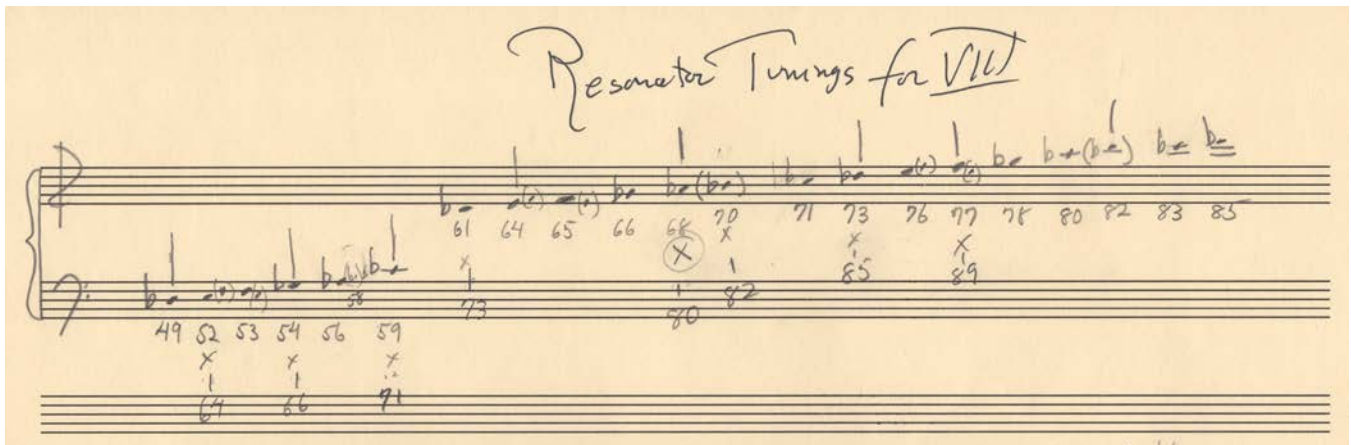 Resonator Tunings for VIII
61 64 65 66 68 70 71 73 76 77 78 80 82 83 85
x x x x x
85 89
82
73 80
58
49 52 53 54 56 59
x x x
64 66 71